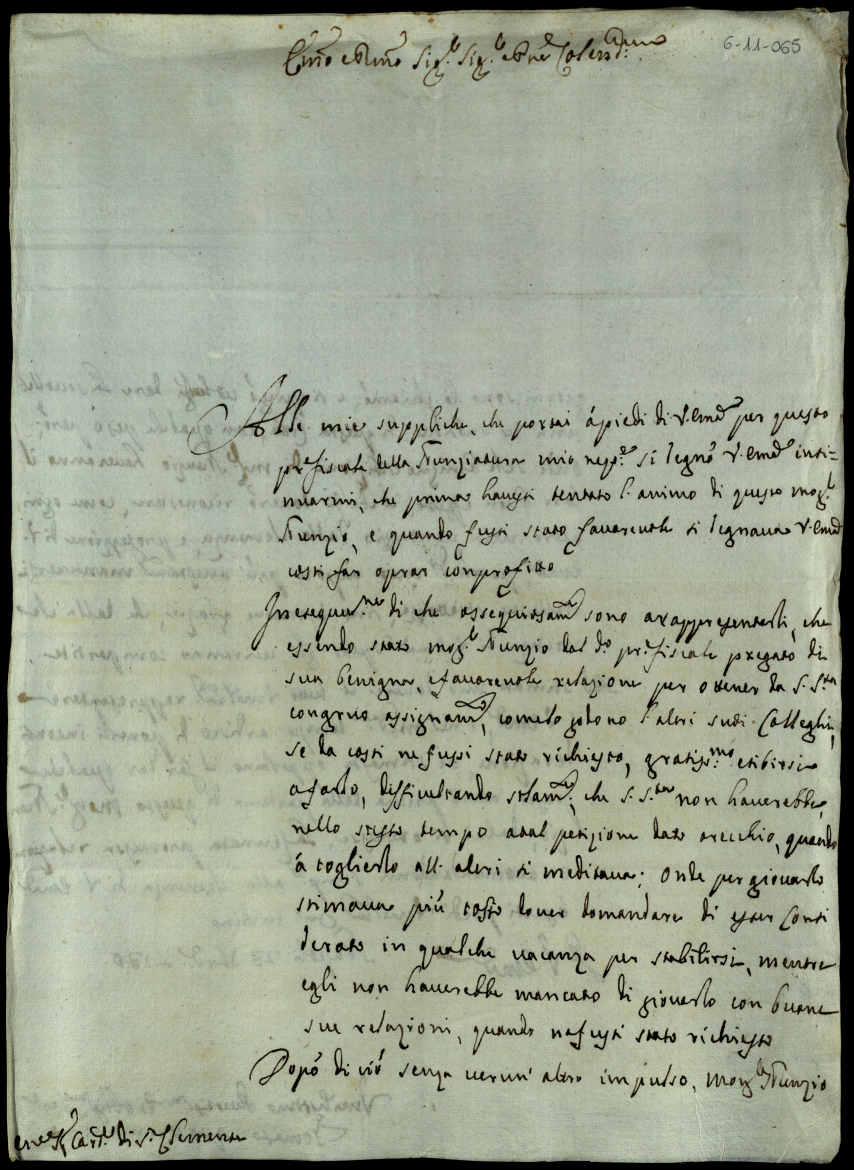 6-11-065
Em̃o e Rm̃o Sig.r Sig.r e Pne Colendmo
Alle mie suppliche, che portai á piedi di V. Emza per questo
pro fiscale della Nunziatura mio nepe si degnó V. Emza insi=
nuarmi, che prima havessi tentato l'animo di questo Mong.r
Nunzio, e quando fussi stato favorevole si degnava V. Emza
costi far oprar con profitto
In esequne di che ossequiosamte sono a rappresentarli, che
essendo stato Mong.r Nunzio dal do pro fiscale pregato di
sua benigna, e favorevole relazione per ottener da S. Sta
congruo assignamto, come lo godono l'altri suoi Colleghi,
se da costi ne fussi stato richiesto, gratissmo esibirsi
a farlo, difficultando solamte, che S. Sta non haverebbe
nello stesso tempo a tal petizione dato orecchio, quando
á toglierlo all' altri si meditava; Onde per giovarlo
stimava piú tosto dover domandare di esser Consi
derato in qualche vacanza per stabilirsi, mentre
egli non haverebbe mancato di giovarlo con buone
sue relazioni, quando ne fussi stato richiesto
Dopó di ció senza verun' altro impulso, Mong.r Nunzio
Card.le di S. Clemente